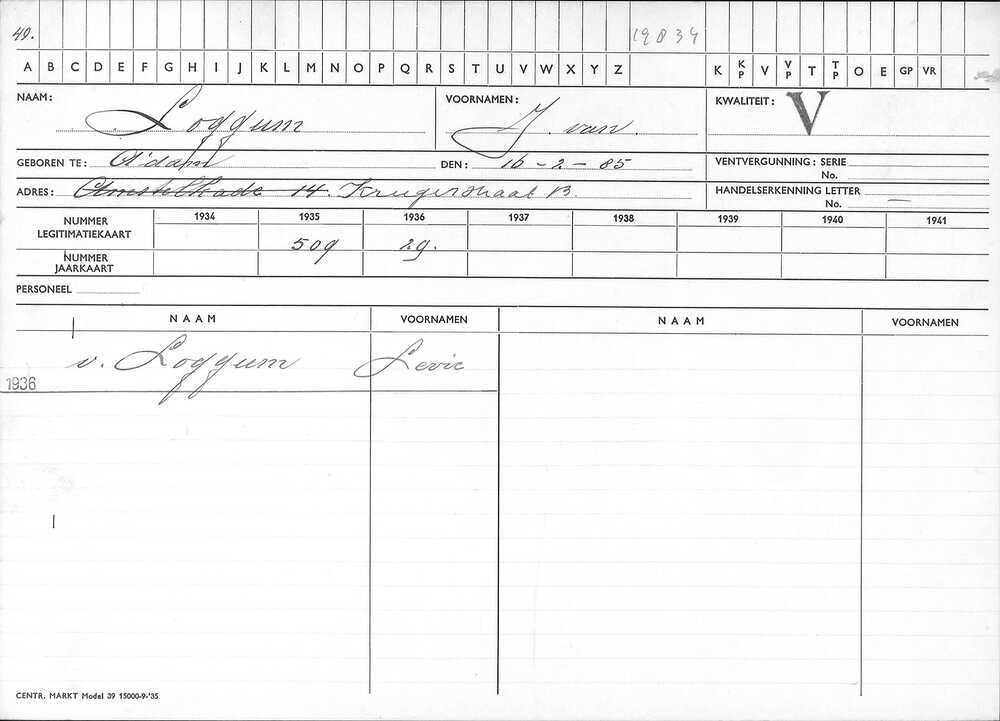 49. 19834
A B C D E F G H I J K L M N O P Q R S T U V W X Y Z K KP V VP T TP O E GP VR
NAAM: Loggum VOORNAMEN: J. van. KWALITEIT: V
GEBOREN TE: A'dam DEN: 16-2-85 VENTVERGUNNING: SERIE
No.
ADRES: Amstelkade 14. Krugerstraat B. HANDELSERKENNING LETTER
No. —
NUMMER LEGITIMATIEKAART 1934 1935 1936 1937 1938 1939 1940 1941
509 29.
NUMMER JAARKAART
PERSONEEL
NAAM VOORNAMEN NAAM VOORNAMEN
v. Loggum Levie
1936
CENTR. MARKT Model 39 15000-9-'35